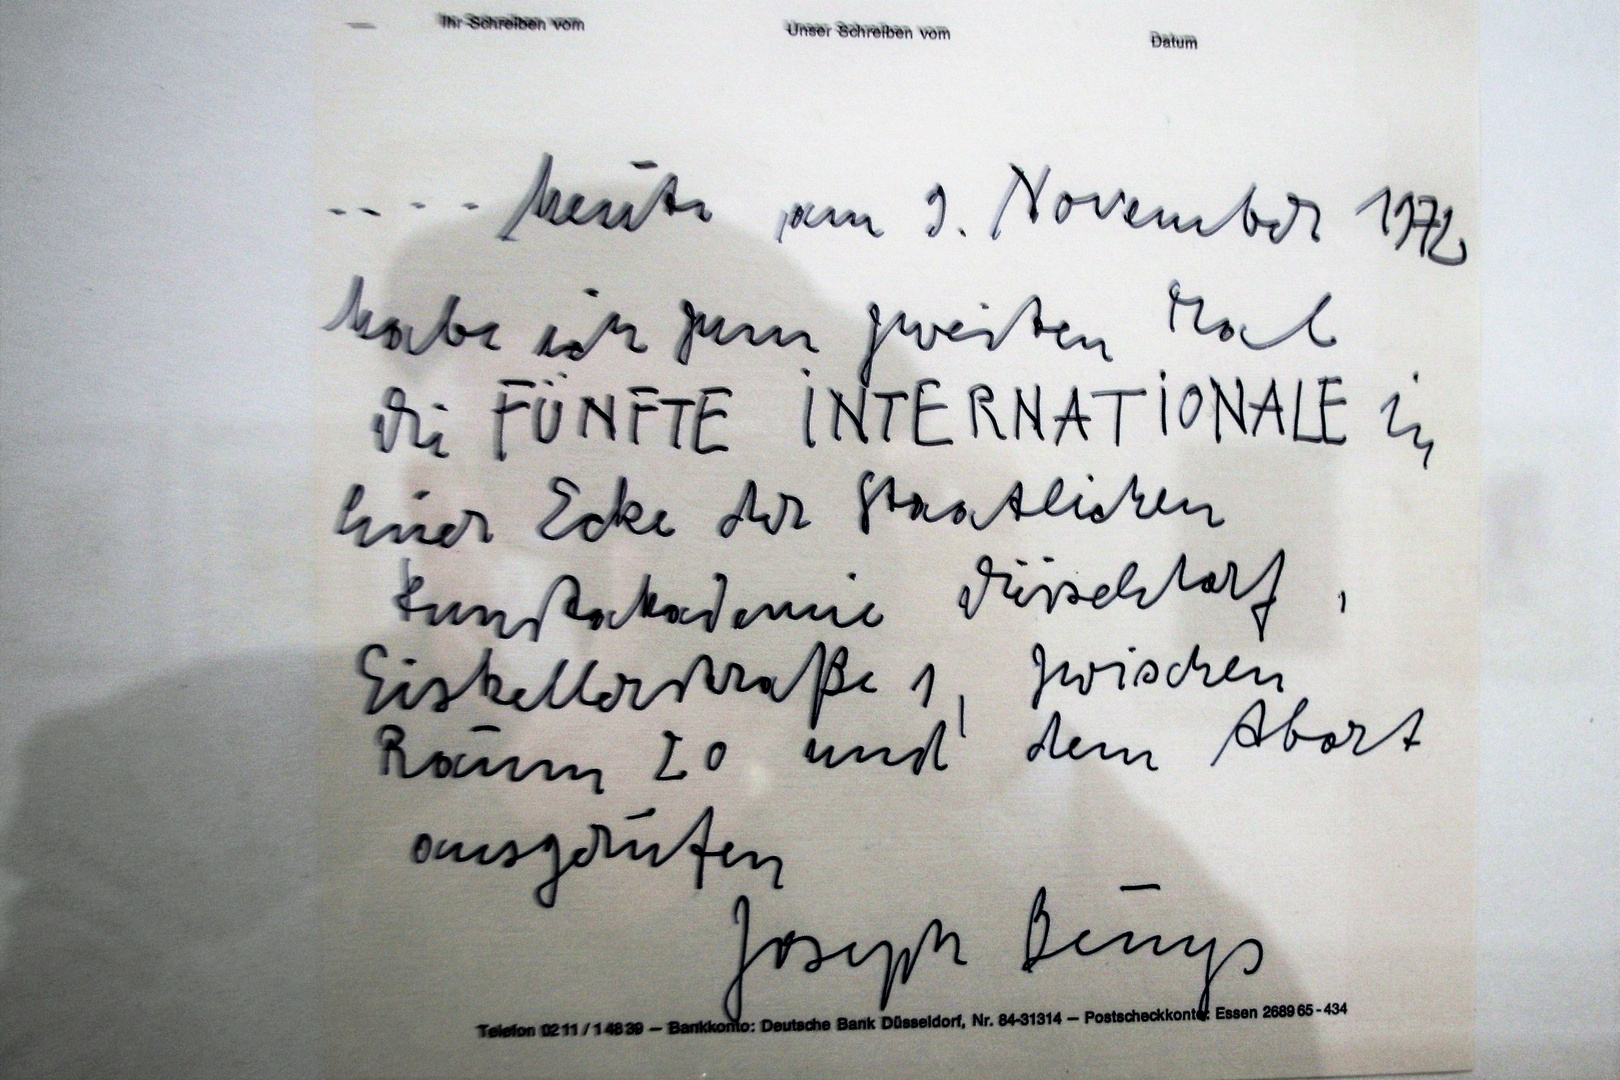 Ihr Schreiben vom Unser Schreiben vom Datum
---- heute am 9. November 1972
habe ich zum zweiten Mal
die FÜNFTE INTERNATIONALE in
einer Ecke der Staatlichen
Kunstakademie Düsseldorf,
Eiskellerstraße 1, zwischen
Raum 20 und dem Abort
ausgerufen
Joseph Beuys
Telefon 0211/14839 – Bankkonto: Deutsche Bank Düsseldorf, Nr. 84-31314 – Postscheckkonto: Essen 26896 5-434